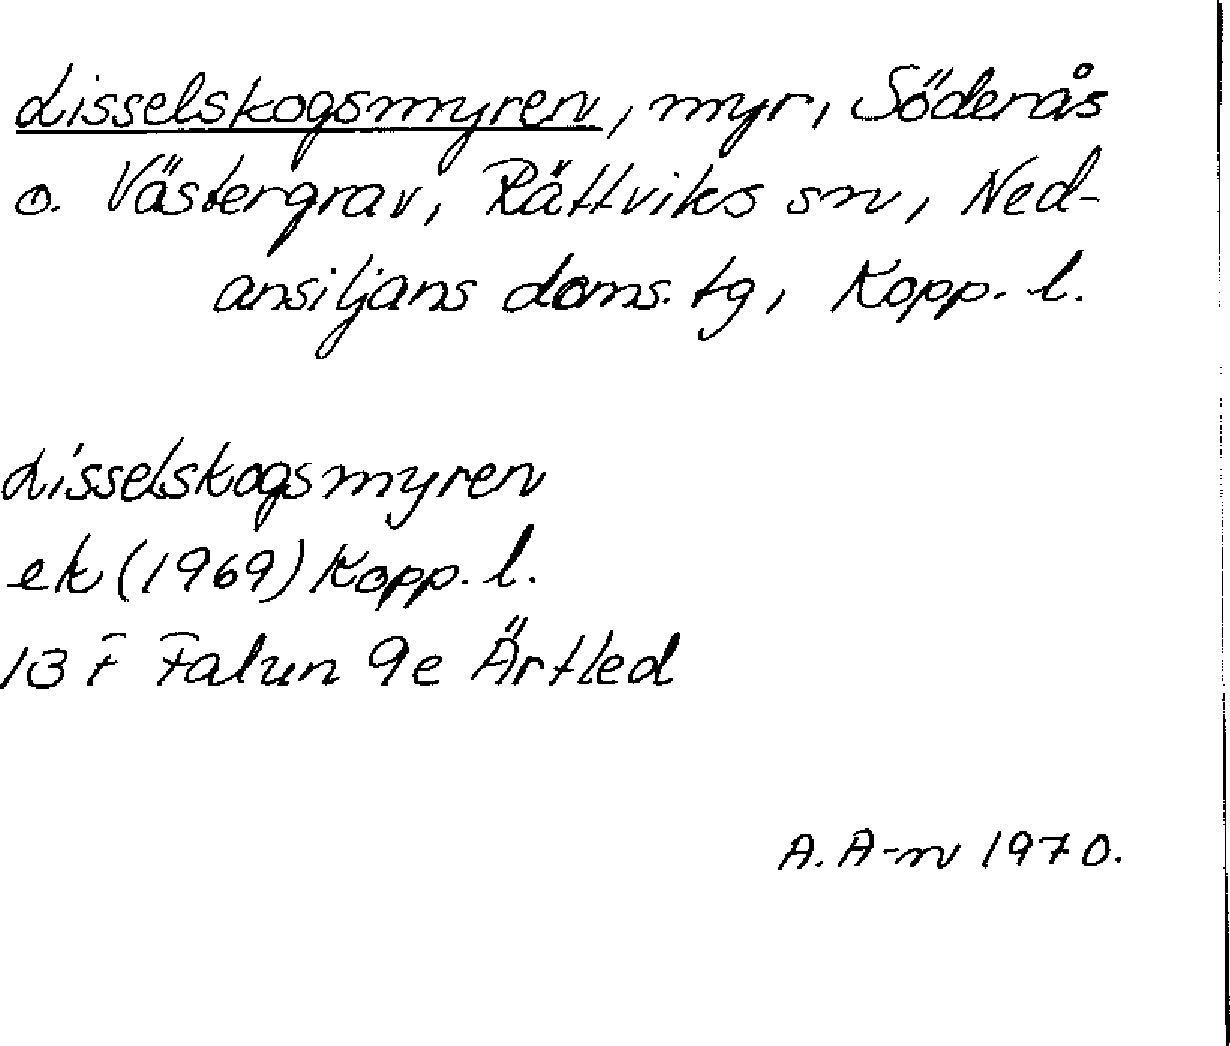 Lisselskogsmyren, myr, Söderås
o. Västergrav, Rättviks sn, Ned-
ansiljans doms. tg, Kopp. l.
Lisselskogsmyren
ek (1969) Kopp. l.
13 F Falun 9e Ärtled
A. A-n 1970.